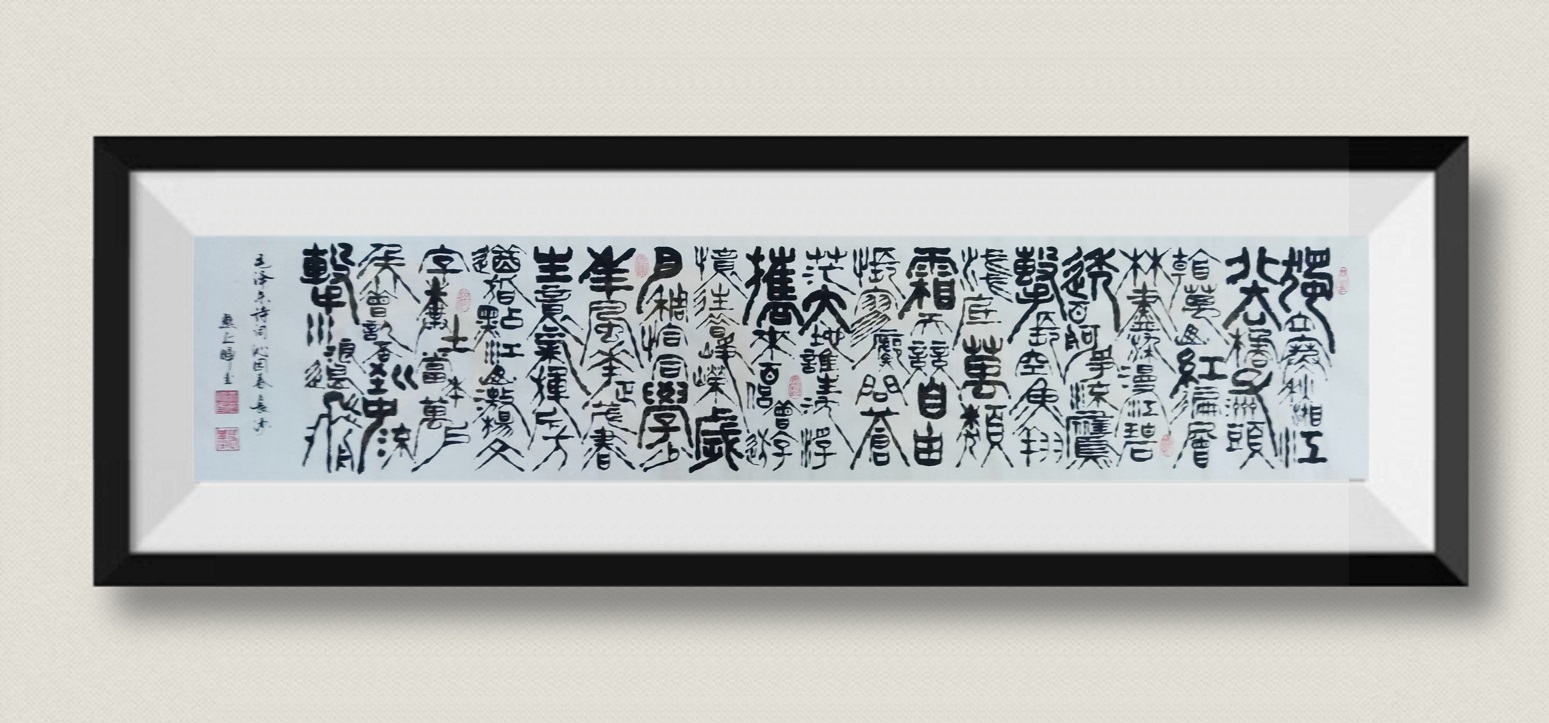 獨立寒秋湘江
北去橘子洲頭
看萬山紅遍層
林盡染漫江碧
透百舸爭流鷹
擊長空魚翔
淺底萬類
霜天競自由
悵寥廓問蒼
茫大地誰主沉浮
攜來百侶曾遊
憶往昔崢嶸歲
月稠恰同學少
年風華正茂書
生意氣揮斥方
遒指點江山激揚文
字糞土當年萬戶
侯曾記否到中流
擊水浪遏飛舟
毛泽东诗词沁园春长沙